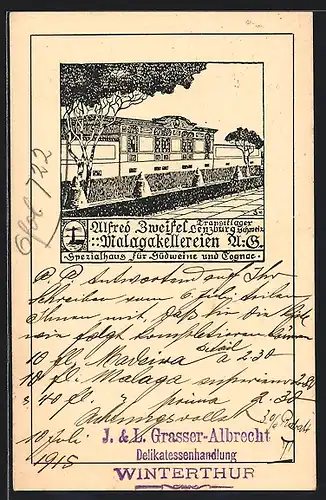 Alfred Zweifel Transitlager Lenzburg Schweiz
Malagakellereien A.-G.
Spezialhaus für Südweine und Cognac
P. P. Antwortend auf Ihr
Schreiben vom 6. Juli teilen
Ihnen mit, daß Sie die
wie folgt komplettieren können
10 fl. Madeira à 2.30
10 fl. Malaga
& 40 fl. " prima à
Achtungsvollst
10 Juli
1915
J. & L. Grasser-Albrecht
Delikatessenhandlung
WINTERTHUR
722